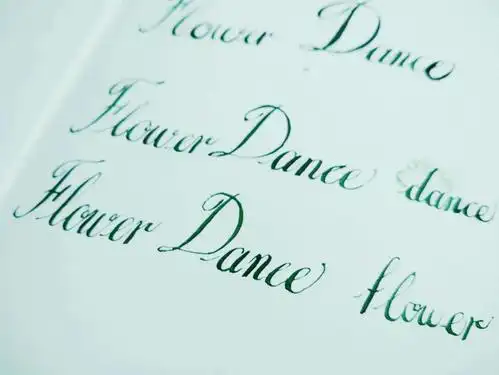 Flower Dance
Flower Dance dance
Flower Dance flower